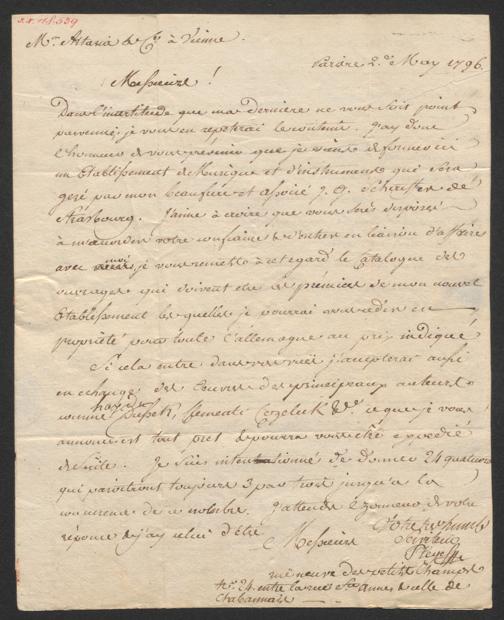 Mrs Artaria & Cie à Vienne.
Paris ce 2 May 1796
Messieurs!
Dans l'incertitude que ma derniere ne vous soit point
parvenue, je vous en repeterai le contenu. J'ay donc
l'honneur de vous prevenir que je viens de former ici
un Etablissement de Musique et d'instruments qui sera
geré par mon beaufrere et associé J. G. Schaeffer de
Strasbourg. J'aime à croire que vous serés disposés
à m'accorder votre confiance & d'entrer en liaison d'affaire
avec moi, je vous remets à cet egard le Catalogue des
ouvrages qui doivent etre les prémices de mon nouvel
Etablissement lesquelles je pourrai vous ceder en
propriété pour toute l'allemagne au prix indiqué
Si cela entre dans vos vues j'accepterai aussi
en echange des Oeuvres des principeaux auteurs
comme haydn Dussek, Clementi Cozeluck &c. ce que je vous
annonce est tout pret & pourra vous etre expedié
de suite. Je suis intentionné de donner 24 quatuors
qui paroitront toujours 3 par trois jusqu'a la
concurrence de ce nombre. J'attends l'honneur de votre
réponse & j'ay celui d'etre
Messieurs
Votre
serviteur
Pleyel
rue neuve des petits Champs
No. 24. entre la rue Ste Annes & celle de
Chabannais